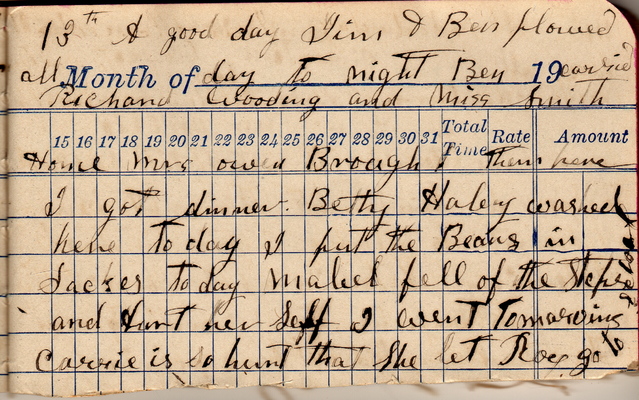 13th A good day Jim & Ben plowed
all day to night Ben carried
Month of 19
Richard Wooding and Miss Smith
15 16 17 18 19 20 21 22 23 24 25 26 27 28 29 30 31 Total Time Rate Amount
Home Mrs owen Brought them here
I got dinner. Betty Haley washed
here to day I put the Beans in
Sackes today Mabel fell of the Steps
and hurt her Self I went Tomarving
Carrie is so hurt that She let Roy go to